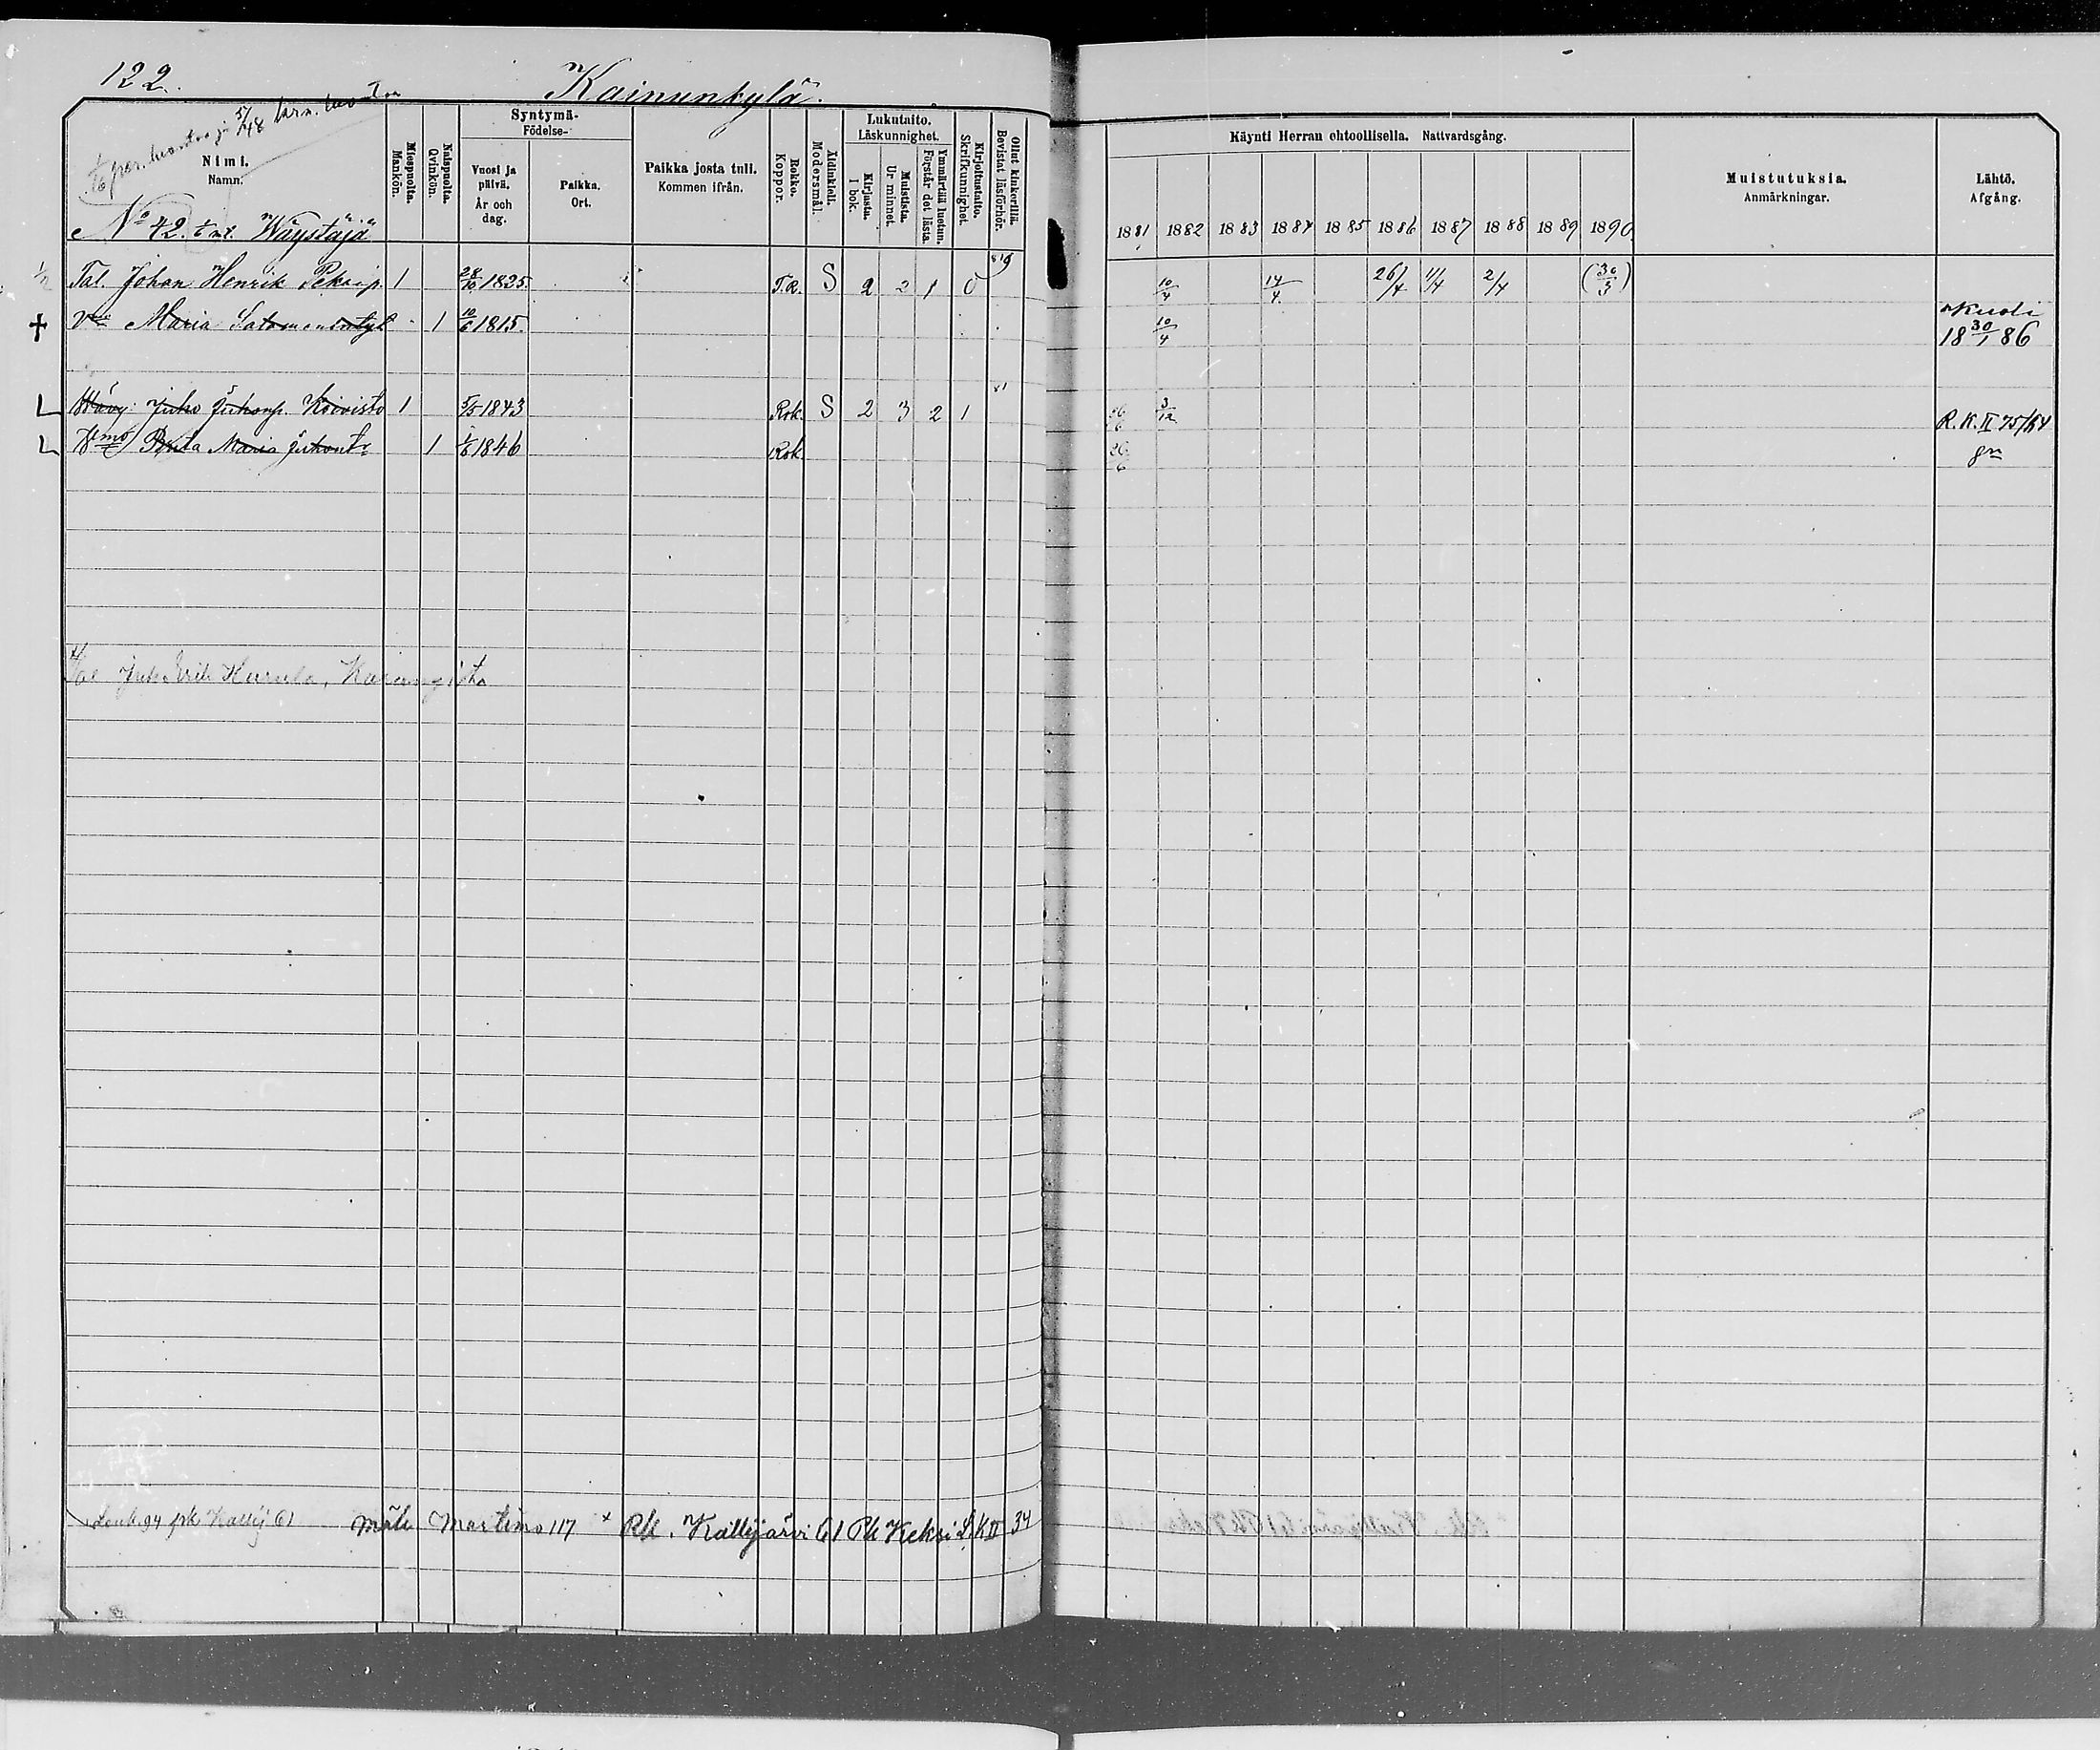 122.
Kainunkylä.
Nimi.
Namn.
Miespuolta.
Mankön.
Naispuolta.
Qvinkön.
Syntymä-
Födelse-
Vuosi ja päivä.
År och dag.
Paikka.
Ort.
Paikka josta tuli.
Kommen ifrån.
Rokko.
Koppor.
Äidinkieli.
Modersmål.
Lukutaito.
Läskunnighet.
Kirjasta.
I bok.
Muistista.
Ur minnet.
Ymmärtää luetun.
Förstår det lästa.
Kirjoitustaito.
Skrifkunnighet.
Ollut kinkerillä.
Bevistat läsförhör.
Käynti Herran ehtoollisella. Nattvardsgång.
1881 1882 1883 1884 1885 1886 1887 1888 1889 1890
Muistutuksia.
Anmärkningar.
Lähtö.
Afgång.
No 42. Wäystäjä
Tal. Johan Henrik Pekanp. 1 28/10 1825. T.R. S 2 2 1 0 10/4 14/4 26/4 11/4 2/4 (30/3)
Maria Salomonintyt 1 10/6 1815. 10/4 Kuoli 18 30/1 86
Juho Juhonp. Koivisto 1 5/5 1843 Rok. S 2 3 2 1 3/12 R.K. II 75/84
Vmo Maria Juhont. 1 1/6 1846 Rok.
Juho Erik
Kallij 61 Martimo 117 × Rk. Kallijärvi 61 Rk Keksi L.K II 34